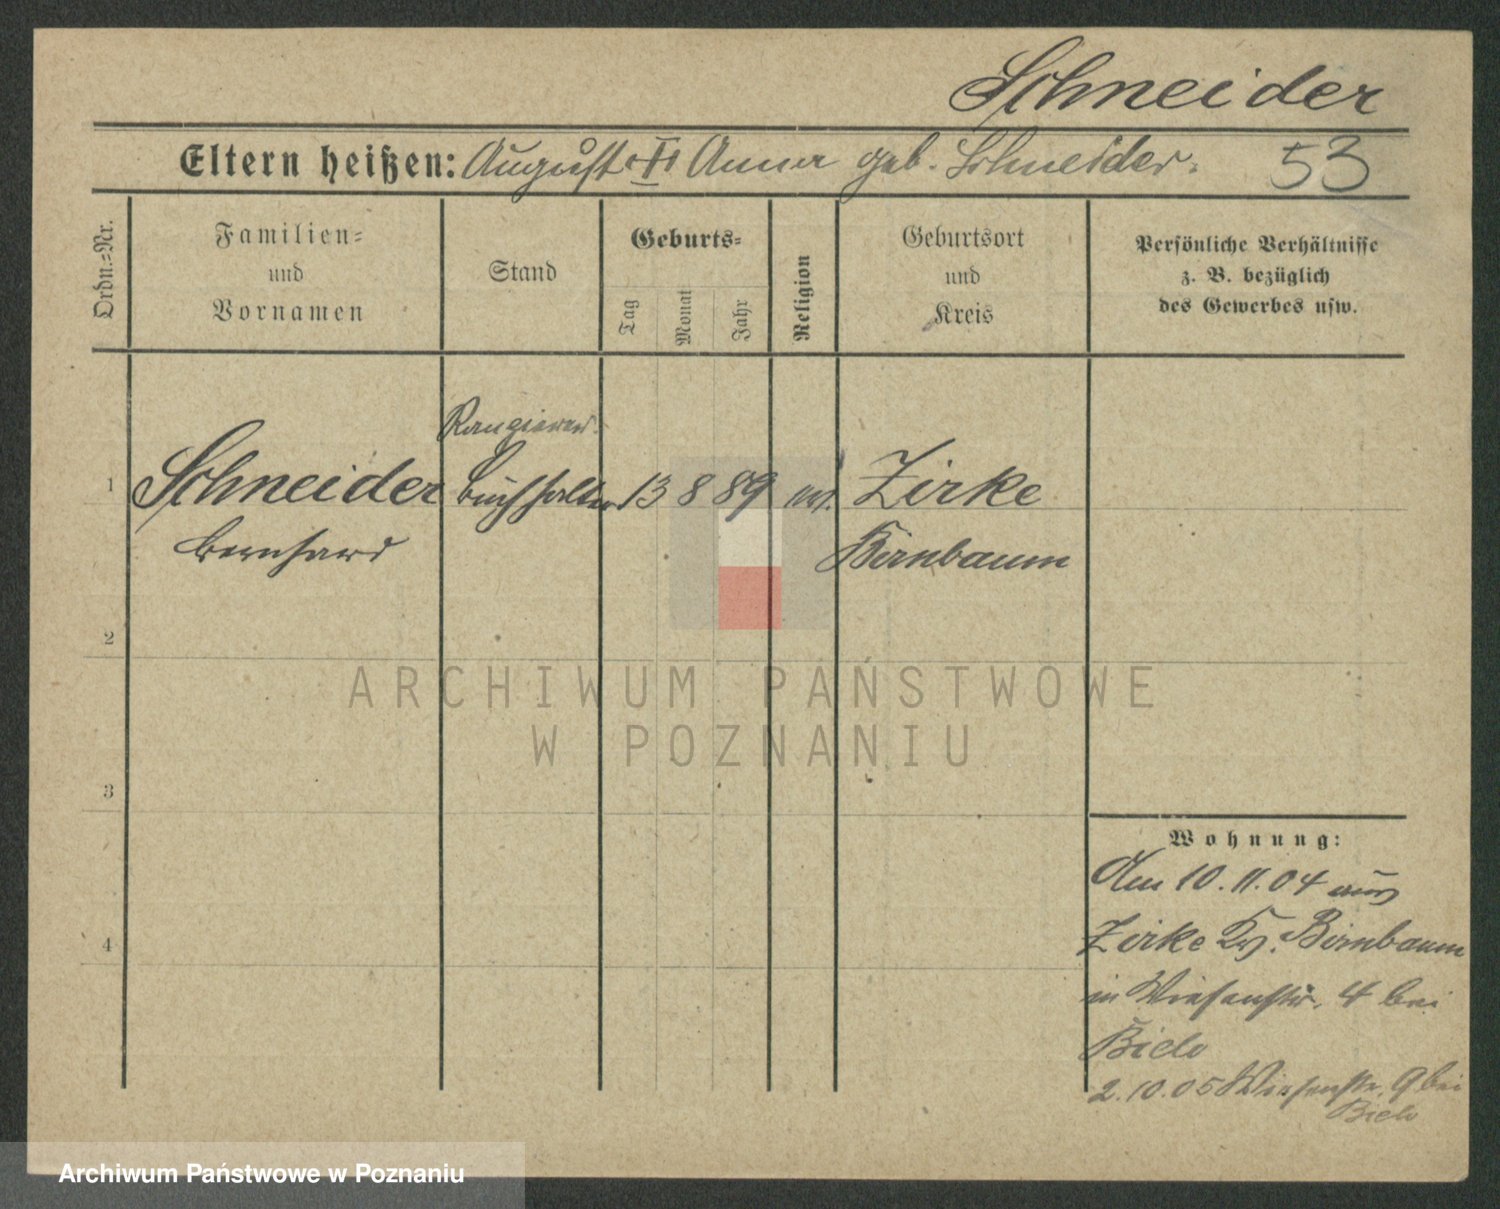 Schneider
Eltern heißen: August u. Anna geb. Schneider. 53
Ordn.=Nr.
Familien=
und
Vornamen
Stand
Geburts=
Tag
Monat
Jahr
Religion
Geburtsort
und
Kreis
Persönliche Verhältnisse
z. B. bezüglich
des Gewerbes usw.
Rangierer
1 Schneider Buchhalter 13 8 89 Zirke
Bernhard Birnbaum
2
3
4
ARCHIWUM PAŃSTWOWE
W POZNANIU
Wohnung:
Am 10.11.04 aus
Zirke Kr. Birnbaum
in Wiesenstr. 4 bei
Bielo
2.10.05 Wiesenstr. 9 bei
Bielo
Archiwum Państwowe w Poznaniu